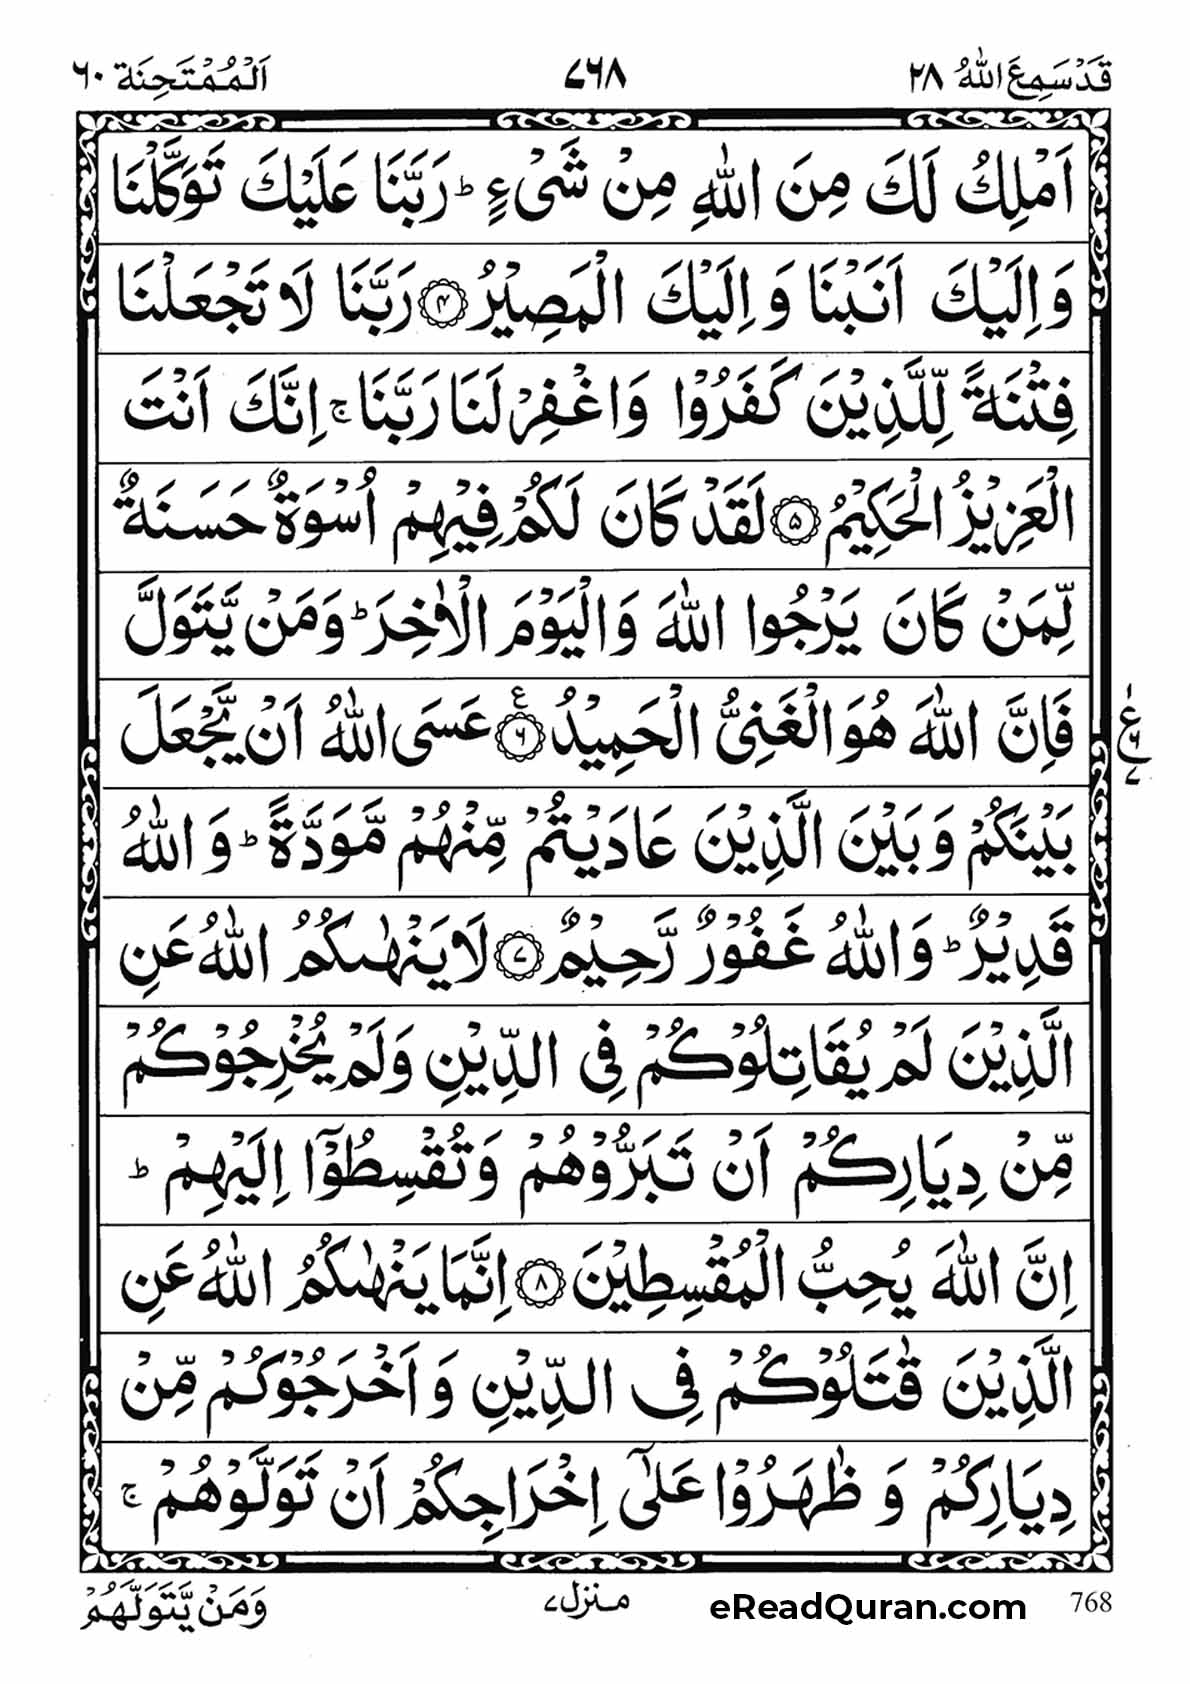 قَدْسَمِعَ اللّٰهُ ٢٨ ٧٦٨ اَلْمُمْتَحِنَة ٦٠
اَمْلِكُ لَكَ مِنَ اللّٰهِ مِنْ شَىْءٍ ؕ رَبَّنَا عَلَيْكَ تَوَكَّلْنَا
وَاِلَيْكَ اَنَبْنَا وَاِلَيْكَ الْمَصِيْرُ ۝٤ رَبَّنَا لَا تَجْعَلْنَا
فِتْنَةً لِّلَّذِيْنَ كَفَرُوْا وَاغْفِرْ لَنَا رَبَّنَا ۚ اِنَّكَ اَنْتَ
الْعَزِيْزُ الْحَكِيْمُ ۝٥ لَقَدْ كَانَ لَكُمْ فِيْهِمْ اُسْوَةٌ حَسَنَةٌ
لِّمَنْ كَانَ يَرْجُوا اللّٰهَ وَالْيَوْمَ الْاٰخِرَ ؕ وَمَنْ يَّتَوَلَّ
فَاِنَّ اللّٰهَ هُوَ الْغَنِىُّ الْحَمِيْدُ ۝٦ ع عَسَى اللّٰهُ اَنْ يَّجْعَلَ
١ ع ٦ ٧
بَيْنَكُمْ وَبَيْنَ الَّذِيْنَ عَادَيْتُمْ مِّنْهُمْ مَّوَدَّةً ؕ وَاللّٰهُ
قَدِيْرٌ ؕ وَاللّٰهُ غَفُوْرٌ رَّحِيْمٌ ۝٧ لَا يَنْهٰىكُمُ اللّٰهُ عَنِ
الَّذِيْنَ لَمْ يُقَاتِلُوْكُمْ فِى الدِّيْنِ وَلَمْ يُخْرِجُوْكُمْ
مِّنْ دِيَارِكُمْ اَنْ تَبَرُّوْهُمْ وَتُقْسِطُوْٓا اِلَيْهِمْ ؕ
اِنَّ اللّٰهَ يُحِبُّ الْمُقْسِطِيْنَ ۝٨ اِنَّمَا يَنْهٰىكُمُ اللّٰهُ عَنِ
الَّذِيْنَ قٰتَلُوْكُمْ فِى الدِّيْنِ وَاَخْرَجُوْكُمْ مِّنْ
دِيَارِكُمْ وَظٰهَرُوْا عَلٰٓى اِخْرَاجِكُمْ اَنْ تَوَلَّوْهُمْ ۚ
وَمَنْ يَّتَوَلَّهُمْ منزل ٧ eReadQuran.com 768